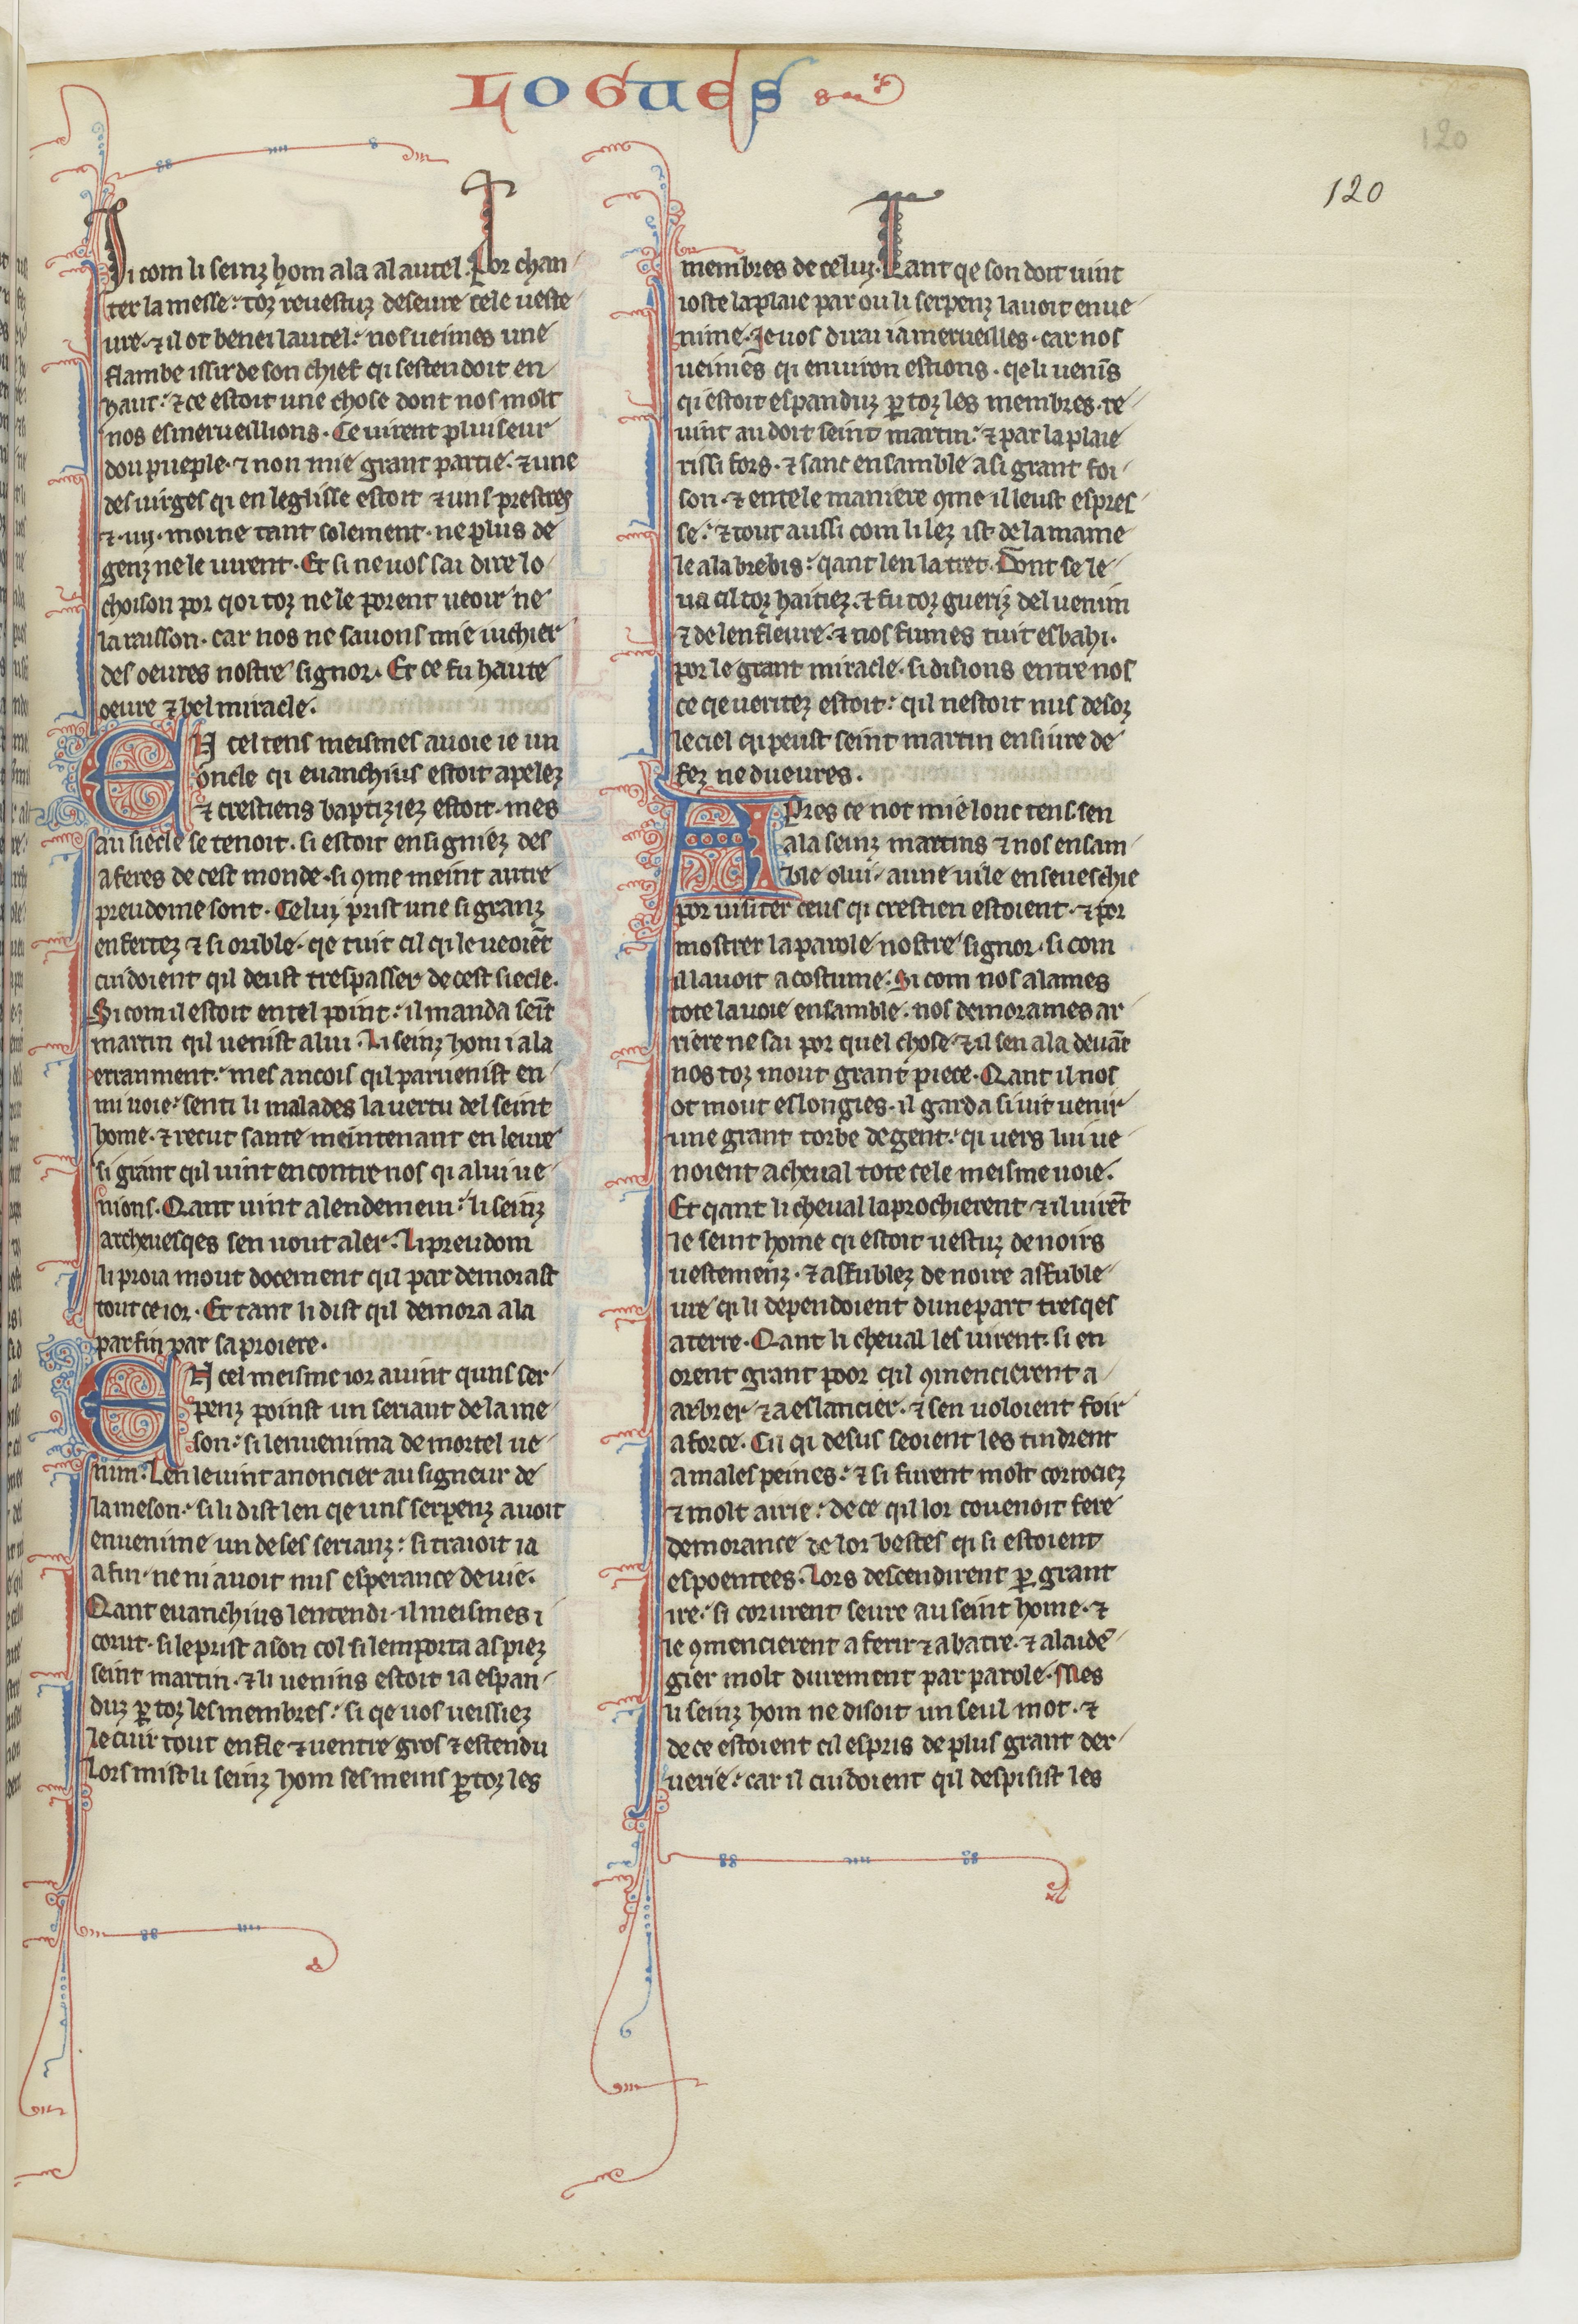 LOGUES
120
120
Si com li seinz hom ala al autel. Por chan
ter la messe. toz revestuz deseure cele veste
ure. ⁊ il ot benei lautel. nos veimes une
flambe issir de son chief qi sestendoit en
haut. ⁊ ce estoit une chose dont nos molt
nos esmerveillions. Ce virent pluiseur
dou pueple. ⁊ non mie grant partie. ⁊ une
des virges qi en leglisse estoit ⁊ uns prestres
⁊ .iij. moine tant solement. ne plus de
genz ne le virent. Et si ne vos sai dire lo
choison por qoi toz ne le porent veoir ne
la raisson. car nos ne savons mie iuchier
des oeures nostre signor. Et ce fu haute
oeure ⁊ bel miracle.
EN cel tens meismes avoie ie un
oncle qi evanchius estoit apelez
⁊ crestiens baptiziez estoit. mes
au siecle se tenoit. si estoit ensigniez des
aferes de cest monde. si ꝯme meint autre
preudome sont. Celuy prist une si granz
enfertez ⁊ si orible. qe tuit cil qi le veoiēt
cuidoient qil deust trespasser de cest siecle.
Si com il estoit en tel point. il manda seīt
martin qil venist a lui. Li seinz hom i ala
erranment. mes ancois qil parvenist en
mi voie. senti li malades la vertu del seint
home. ⁊ recut sante meintenant en leure
si grant qil vint encontre nos qi a lui ve
nions. Qant vint a lendemein. li seinz
archevesqes sen vout aler. Li preudom
li proia mout docement qil par demorast
tout ce ior. Et tant li dist qil demora a la
parfin par sa proiere.
EN cel meisme ior avint quns ser
penz poinst un seriant de la me
son. si lenvenima de mortel ve
nim. Len le vint anoncier au signeur de
la meson. si li dist len qe uns serpenz avoit
envenime un de ses serianz. si traioit ia
a fin. ne ni avoit nus esperance de vie.
Qant evanchius lentendi. il meismes i
corut. si le prist a son col si lemporta as piez
seint martin. ⁊ li venins estoit ia espan
duz ꝑ toz les membres. si qe vos veissiez
le cuir tout enfle ⁊ ventre gros ⁊ estendu
Lors mist li seinz hom ses meins ꝑ toz les
membres de celuy. Tant qe son doit vint
ioste la plaie par ou li serpenz lavoit enve
nime. Je vos dirai ia merveilles. car nos
veimes qi environ estions. qe li venīs
qi estoit espanduz ꝑ toz les membres. re
vint au doit seint martin. ⁊ par la plaie
rissi fors. ⁊ sanc ensamble a si grant foi
son. ⁊ en tele maniere ꝯme il leust espres
se. ⁊ tout aussi com li lez ist de la mame
le a la brebis. qant len la tret. Dont se le
va cil toz haitiez. ⁊ fu toz gueriz del venim
⁊ de lenfleure. ⁊ nos fumes tuit esbahi.
por le grant miracle. si disions entre nos
ce qe veritez estoit. qil nestoit nus desoz
le ciel qi peust seint martin ensiure de
fez ne dueures.
APres ce not mie lonc tens. sen
ala seinz martins ⁊ nos ensam
ble o lui. a une vile en seveschie
por visiter ceus qi crestien estoient. ⁊ por
mostrer la parole nostre signor. si com
il avoit acostume. Si com nos alames
tote la voie ensamble. nos demorames ar
riere ne sai por quel chose. ⁊ il sen ala devāt
nos toz mout grant piece. Qant il nos
ot mout eslongies. il garda si vit venir
une grant torbe de gent. qi vers lui ve
noient a cheval tote cele meisme voie.
Et qant li cheval laprochierent ⁊ il virēt
le seint home qi estoit vestuz de noirs
vestemenz. ⁊ asfublez de noire asfuble
ure qi li dependoient dune part tresqes
a terre. Qant li cheval les virent. si en
orent grant poor qil ꝯmencierent a
arbrer ⁊ a eslancier. ⁊ sen voloient foir
a force. Cil qi desus seoient les tindrent
a males peines. ⁊ si furent molt corrociez
⁊ molt airie. de ce qil lor covenoit fere
demorance de lor bestes qi si estoient
espoentees. Lors descendirent ꝑ grant
ire. si corurent seure au seint home. ⁊
le ꝯmencierent a ferir ⁊ a batre. ⁊ a laide
gier molt durement par parole. Mes
li seinz hom ne disoit un seul mot. ⁊
de ce estoient cil espris de plus grant der
verie. car il cuidoient qil despisist les